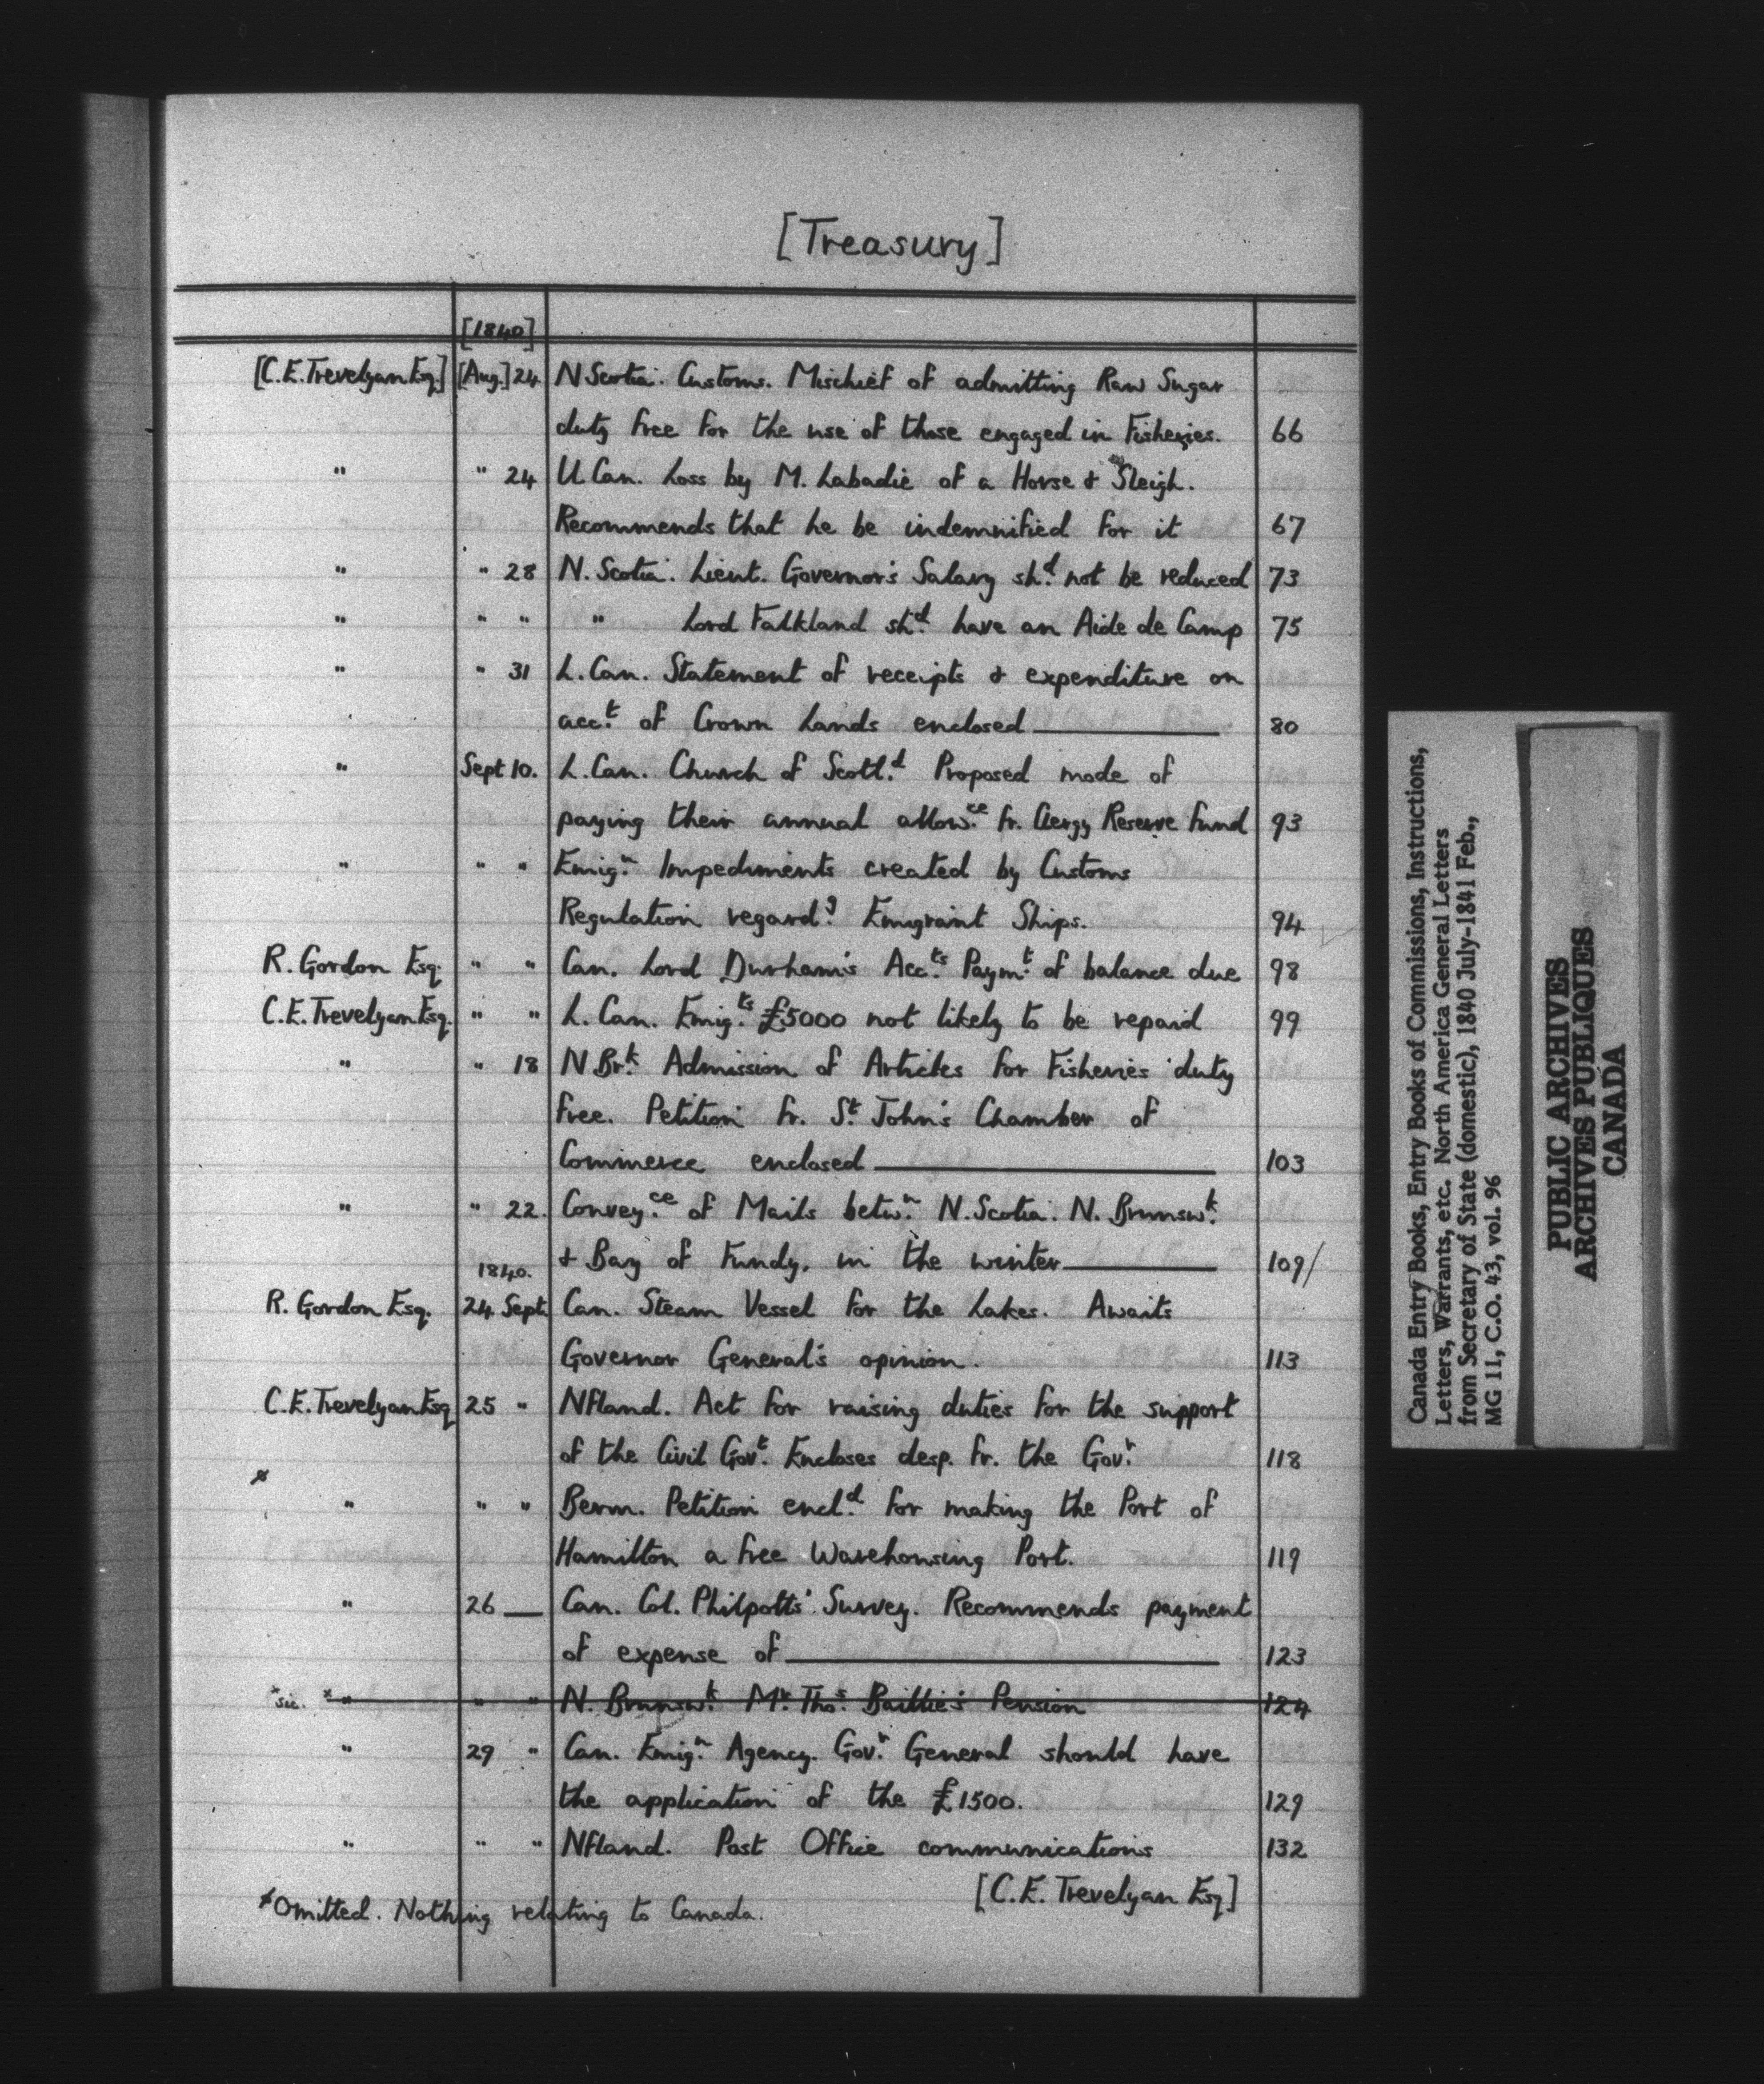 [Treasury]
[1840]
[C.E. Trevelyan Esq.] [Aug.] 24. N Scotia. Customs. Mischief of admitting Raw Sugar
duty free for the use of those engaged in Fisheries. 66
" " 24 U. Can. Loss by M. Labadie of a Horse & Sleigh.
Recommends that he be indemnified for it 67
" " 28 N. Scotia. Lieut. Governor's Salary shd. not be reduced 73
" " " " Lord Falkland shd. have an Aide de Camp 75
" " 31 L. Can. Statement of receipts & expenditure on
acct. of Crown Lands enclosed 80
" Sept 10. L. Can. Church of Scotld. Proposed mode of
paying their annual allowce. fr. Clergy Reserve Fund 93
" " " Emign. Impediments created by Customs
Regulation regardg. Emigrant Ships. 94
R. Gordon Esq. " " Can. Lord Durham's Accts. Paymt. of balance due 98
C.E. Trevelyan Esq. " " L. Can. Emigts. £5000 not likely to be repaid 99
" " 18 N Brk. Admission of Articles for Fisheries duty
free. Petition fr. St. John's Chamber of
Commerce enclosed 103
" " 22. Conveyce. of Mails betwn. N. Scotia. N. Brunswk.
& Bay of Fundy, in the winter 109/
1840.
R. Gordon Esq. 24 Sept. Can. Steam Vessel for the Lakes. Awaits
Governor General's opinion. 113
C.E. Trevelyan Esq 25 " Nfland. Act for raising duties for the support
of the Civil Govt. Encloses desp. fr. the Govr. 118
ø " " " Berm. Petition encld. for making the Port of
Hamilton a free Warehousing Port. 119
" 26 — Can. Col. Philpotts' Survey. Recommends payment
of expense of 123
*sic. * " " " N. Brunswk. Mr. Thos. Baillie's Pension 124
" 29 " Can. Emign. Agency. Govr. General should have
the application of the £1500. 129
" " " Nfland. Post Office communications 132
[C.E. Trevelyan Esq]
øOmitted. Nothing relating to Canada.
Canada Entry Books, Entry Books of Commissions, Instructions,
Letters, Warrants, etc. North America General Letters
from Secretary of State (domestic), 1840 July-1841 Feb.,
MG 11, C.O. 43, vol. 96
PUBLIC ARCHIVES
ARCHIVES PUBLIQUES
CANADA